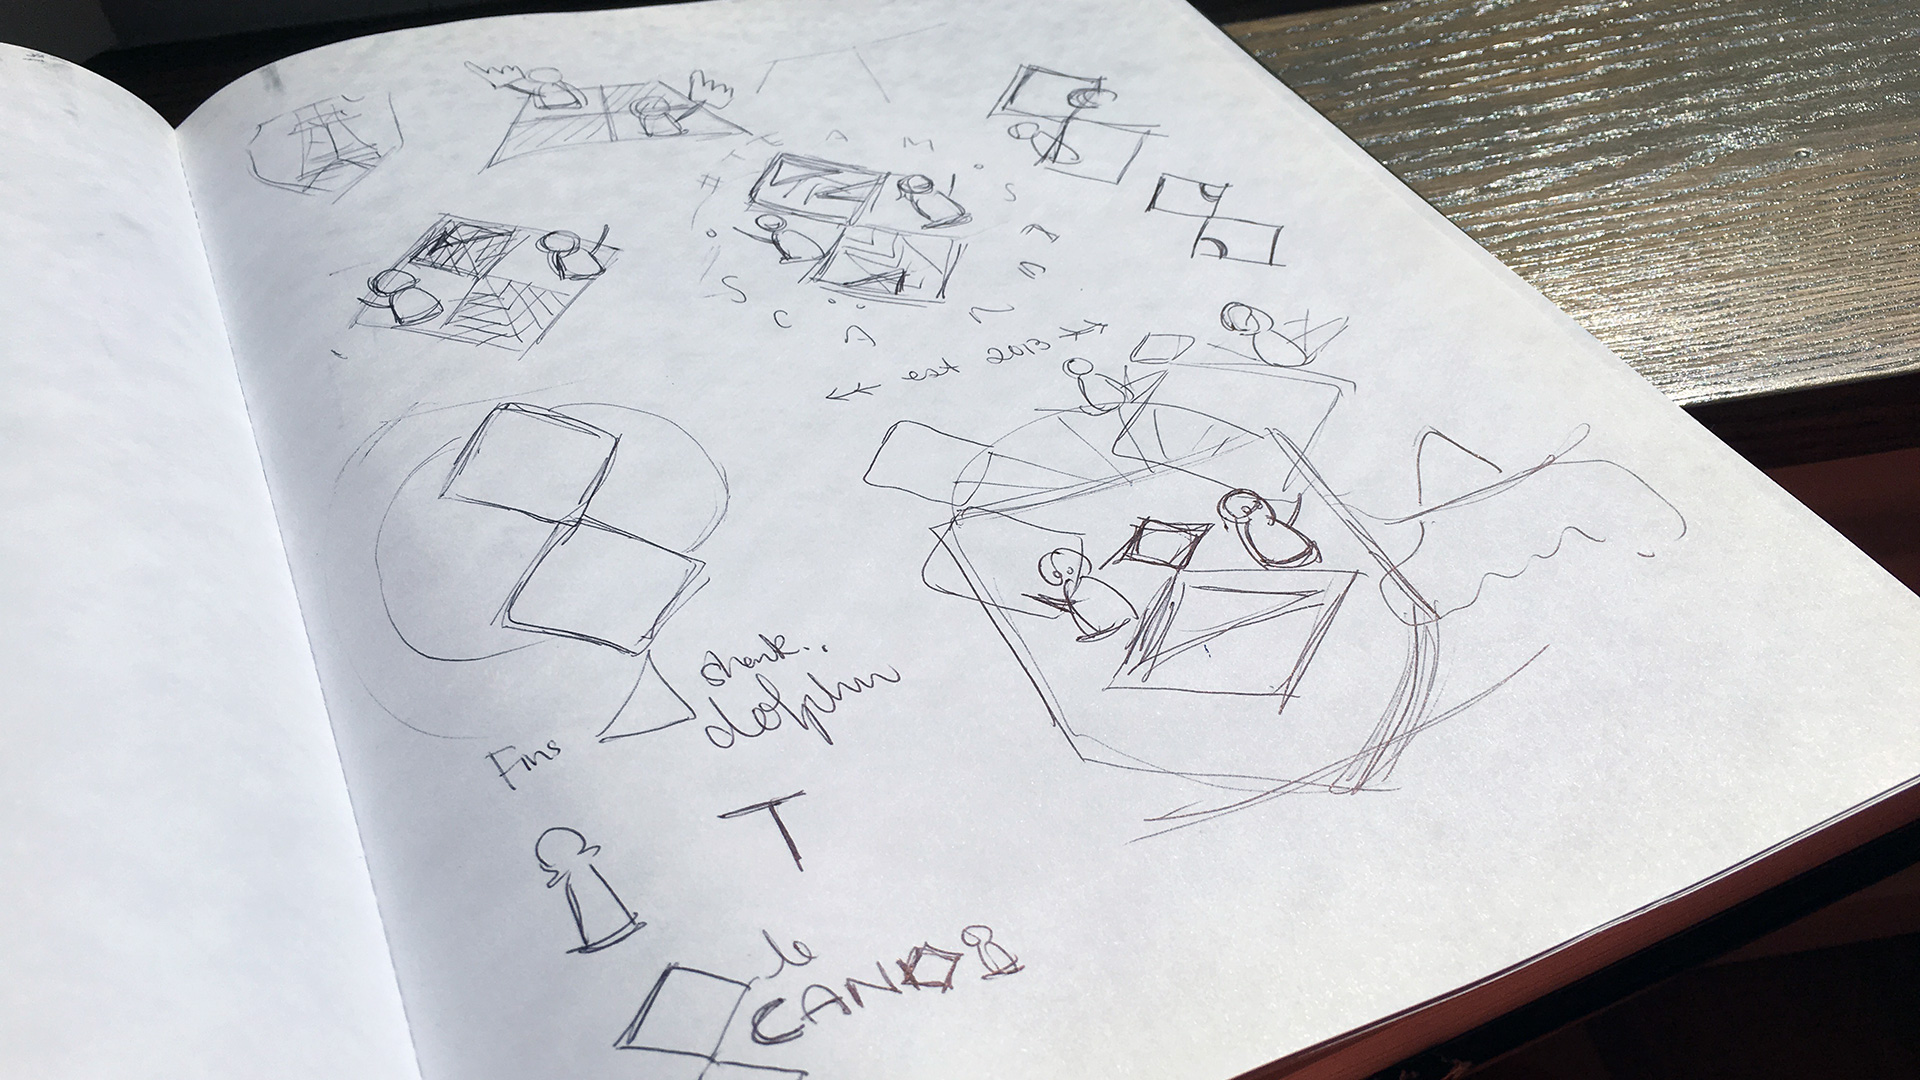 TEAM
SCANN
est 2013
shark..
dolphin
Fins
T
le
CAN